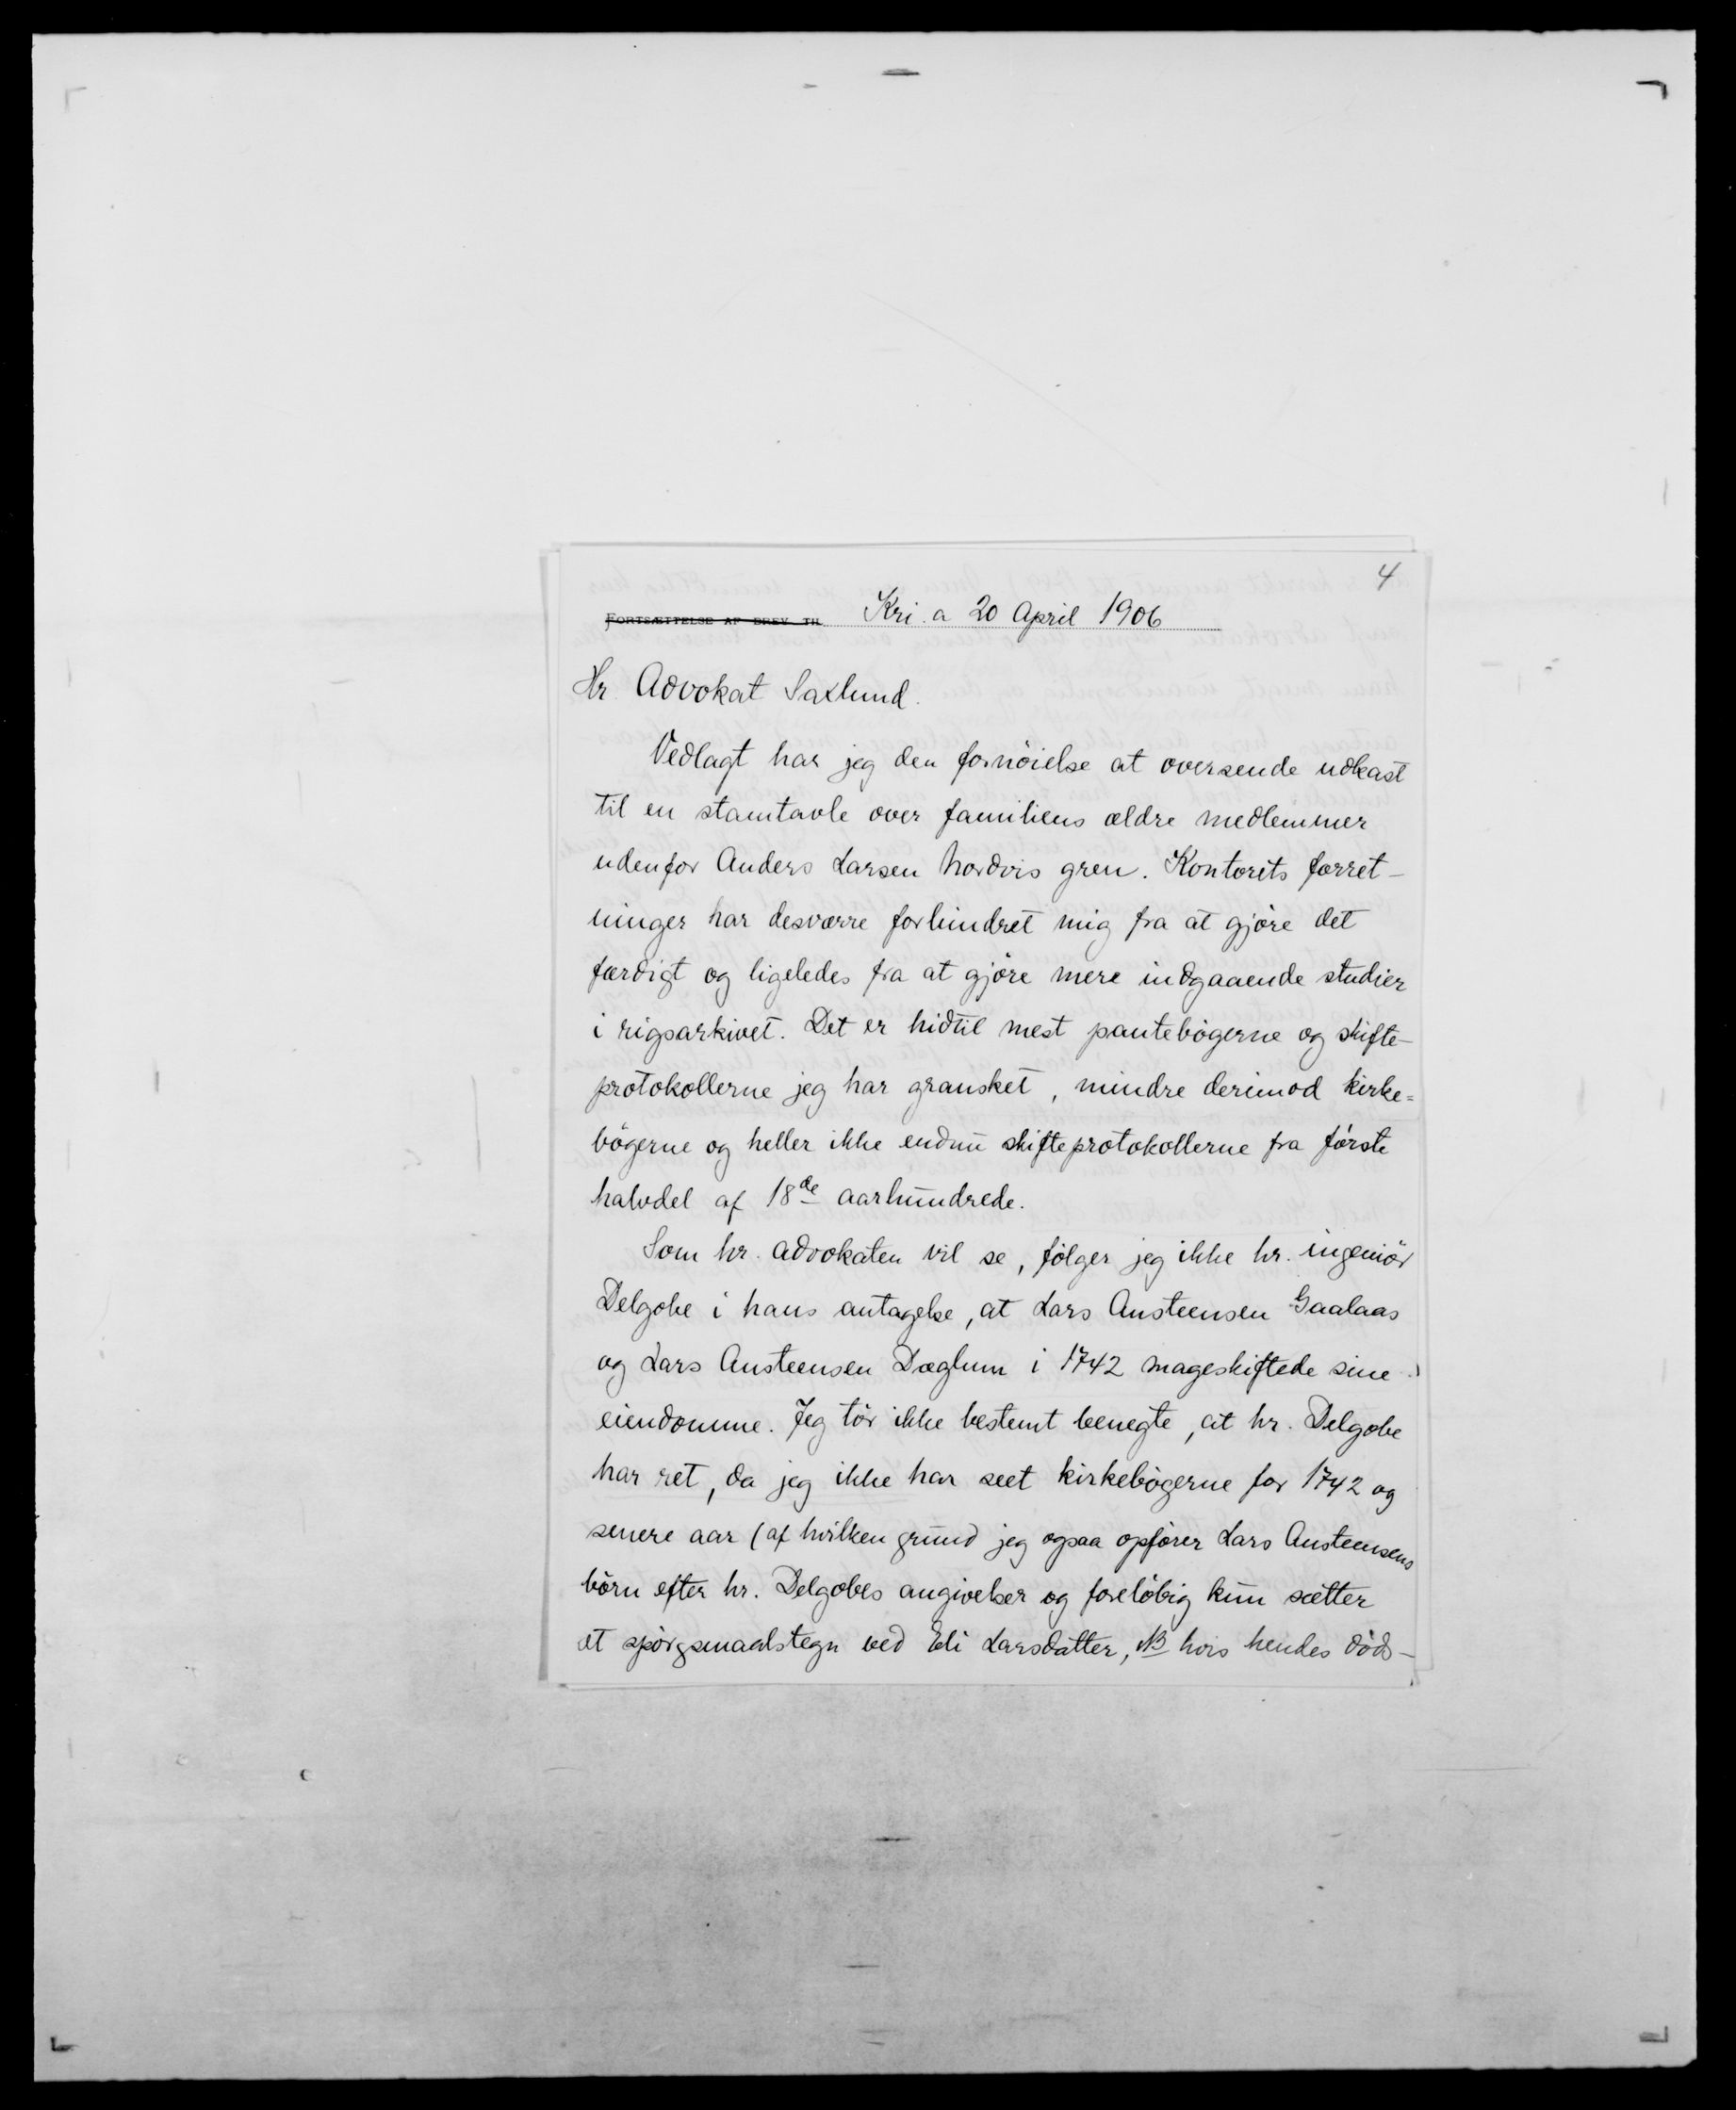 4
FORTSÆTTELSE AF BREV TIL Kri.a 20 April 1906
Hr. Advokat Saxlund.
Vedlagt har jeg den fornöielse at oversende udkast
til en stamtavle over familiens ældre medlemmer
udenfor Anders Larsen hordvis gren. Kontorets forret-
ninger har desværre forhindret mig fra at gjöre det
færdigt og ligeledes fra at gjöre mere indgaaende studier
i rigsarkivet. Det er hidtil mest pantebögerne og skifte-
protokollerne jeg har gransket, mindre derimod kirke=
bögerne og heller ikke endnu skifteprotokollerne fra förste
halvdel af 18de aarhundrede.
Som hr. advokaten vil se, fölger jeg ikke hr. ingeniör
Delgobe i hans antagelse, at Lars Austeensen Gaalaas
og Lars Austeensen Dæglum i 1742 mageskiftede sine
eiendomme. Jeg tör ikke bestemt benegte, at hr. Delgobe
har ret, da jeg ikke har seet kirkebögerne for 1742 og
senere aar (af hvilken grund jeg ogsaa opförer Lars Austeensens
börn efter hr. Delgobes angivelser og forelöbig kun sætter
et spörgsmaalstegn ved Eli Larsdatter, NB hvis hendes döds-